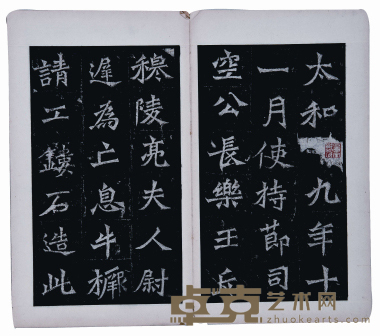 太和九年十
一月使持節司
空公長樂王丘
穆陵亮夫人尉
遲為亡息牛橛
請工鏤石造此
卓克艺术网
zhuokearts.com